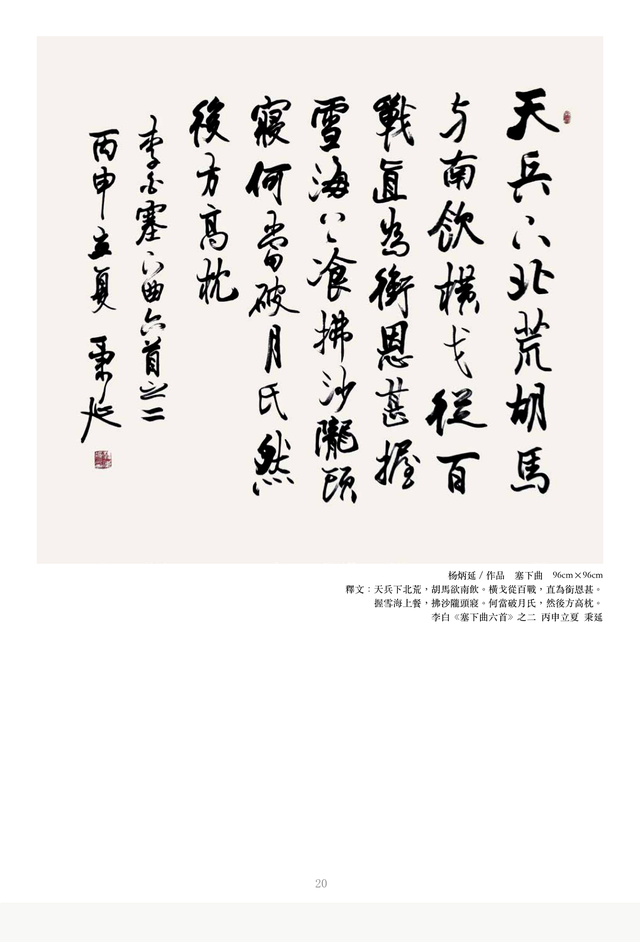 天兵下北荒胡馬
与南飲橫戈從百
戰直為銜恩甚握
雪海上飡拂沙隴頭
寢何當破月氏然
後方高枕
李白塞下曲六首之二
丙申立夏 秉延
杨炳延 / 作品 塞下曲 96cm×96cm
釋文：天兵下北荒，胡馬欲南飲。橫戈從百戰，直為銜恩甚。
握雪海上餐，拂沙隴頭寢。何當破月氏，然後方高枕。
李白《塞下曲六首》之二 丙申立夏 秉延
20